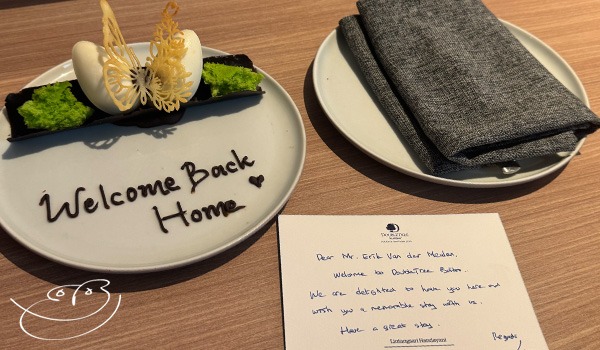 Welcome Back
Home
DOUBLETREE
Dear Mr. Erik Van der Meiden,
Welcome to DoubleTree
We are delighted to have you here and
wish you a memorable stay with us.
Have a great stay.
Regards,